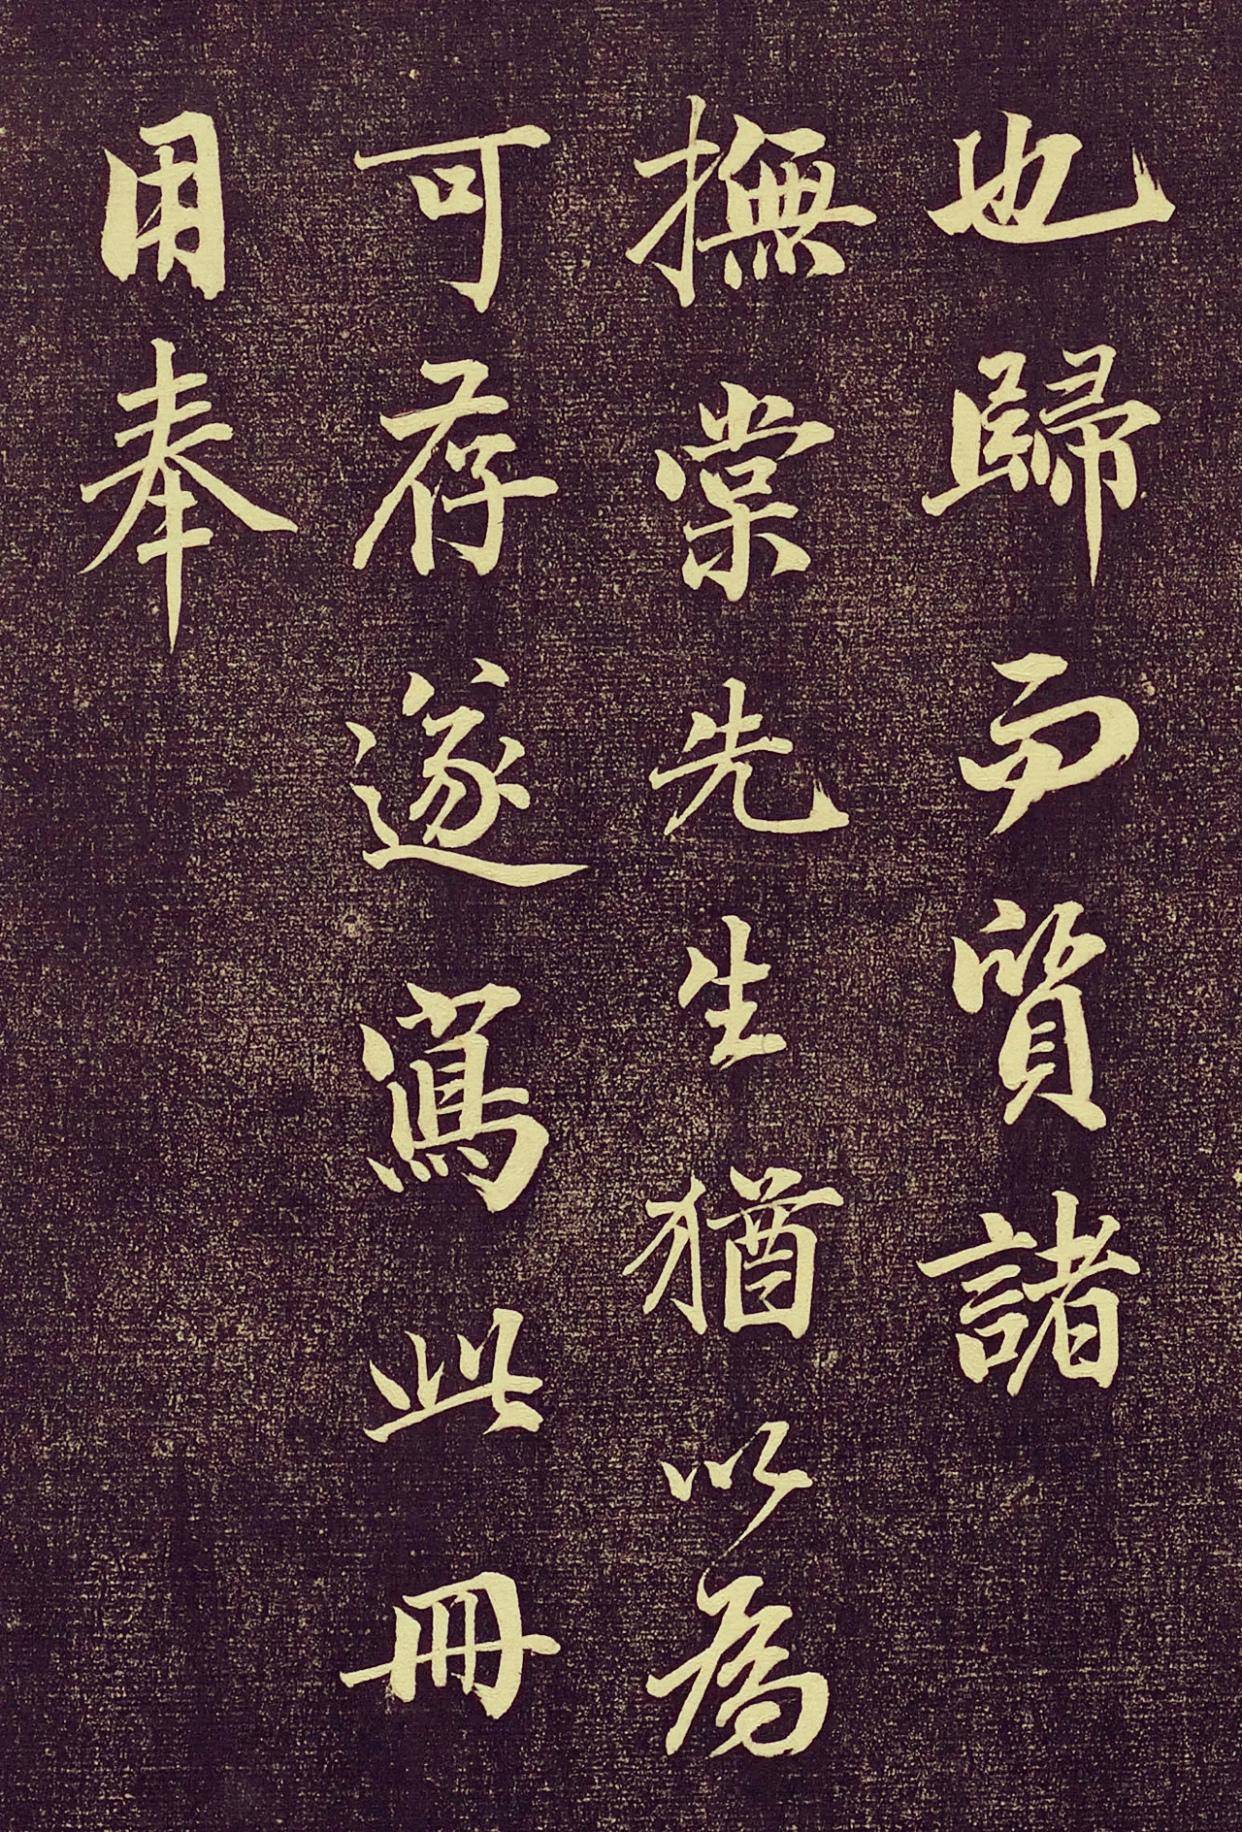 也歸而質諸
撫棠先生猶以為
可存遂寫此冊
用奉